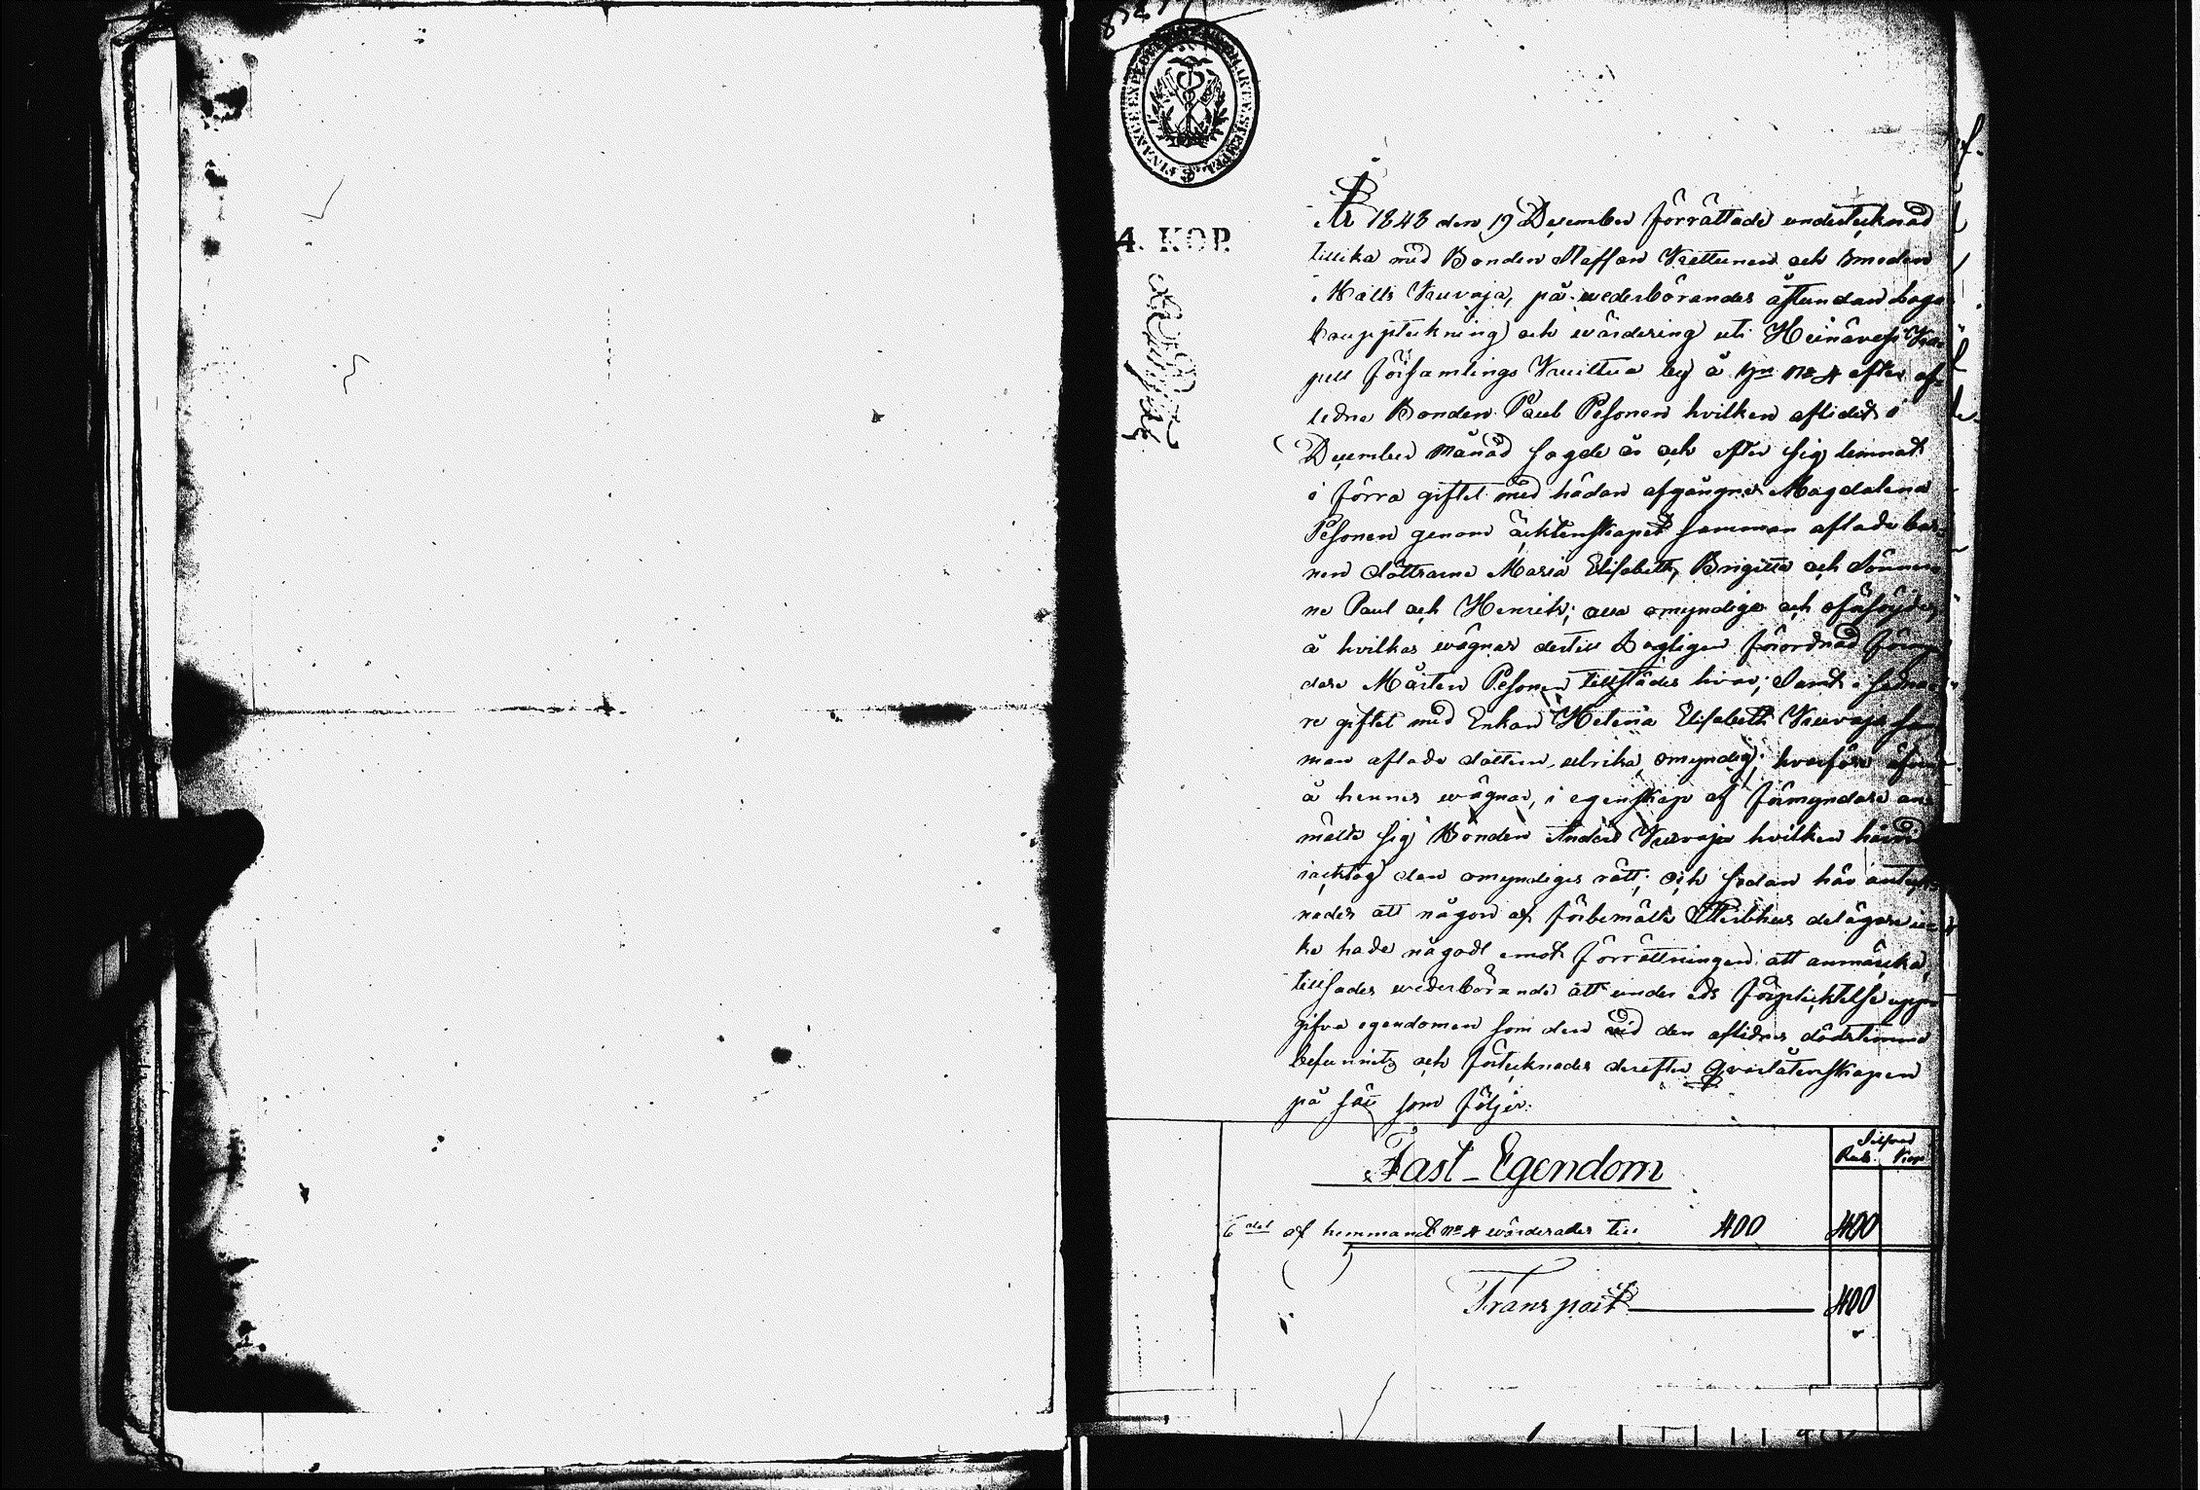 4. KOP.
År 1848 den 19 December förrättade undertecknad
tillika med Bonden Staffan Vrettunen och Smeden
Matts Kuvaja, på wederbörandes åstundan laga
bouppteckning och wärdering uti Heinävesi Ka-
pell församlings Kuittua by å Hn No 4 efter af-
ledne Bonden Paul Pesonen hvilken aflidit i
December månad sagde år och efter sig lemnat
i förra giftet med hädan afgångne Magdalena
Pesonen genom äcktenskapet samman aflade bar-
nen döttrarne Maria Elisabeth, Brigitta och Sönner-
ne Paul och Henrik; alla omyndige och oförsörjde,
å hvilkas wägnar dertill Lagligen förordnad förmyn-
dare Mårten Pesonen tillstädes war; Samt i sedna-
re giftet med Enkan Helena Elisabeth Kuvaja sam-
man aflade dottren Ulrika, omyndig; hvarföre äfven
å hennes wägnar, i egenskap af förmyndare an-
mälte sig Bonden Anders Kuvaja hvilken härvid
iacktog den omyndiges rätt; och sedan här anteck-
nades att någon af förbemälte Sterbhus delägare ic-
ke hade någodt emot förrättningen att anmärka,
tillsades wederbörande att under eds förplicktelse upp-
gifva egendomen som den vid den aflidnes dödstimma
befunnits och förtecknades derefter qvarlåtenskapen
på sätt som följer:
Silfver
Rub. Kop.
Fast Egendom
6 del af hemmanet No 4 wärderades till 400 400
Transport 400